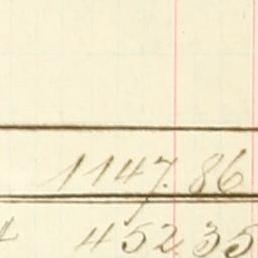 1147.86
452.35